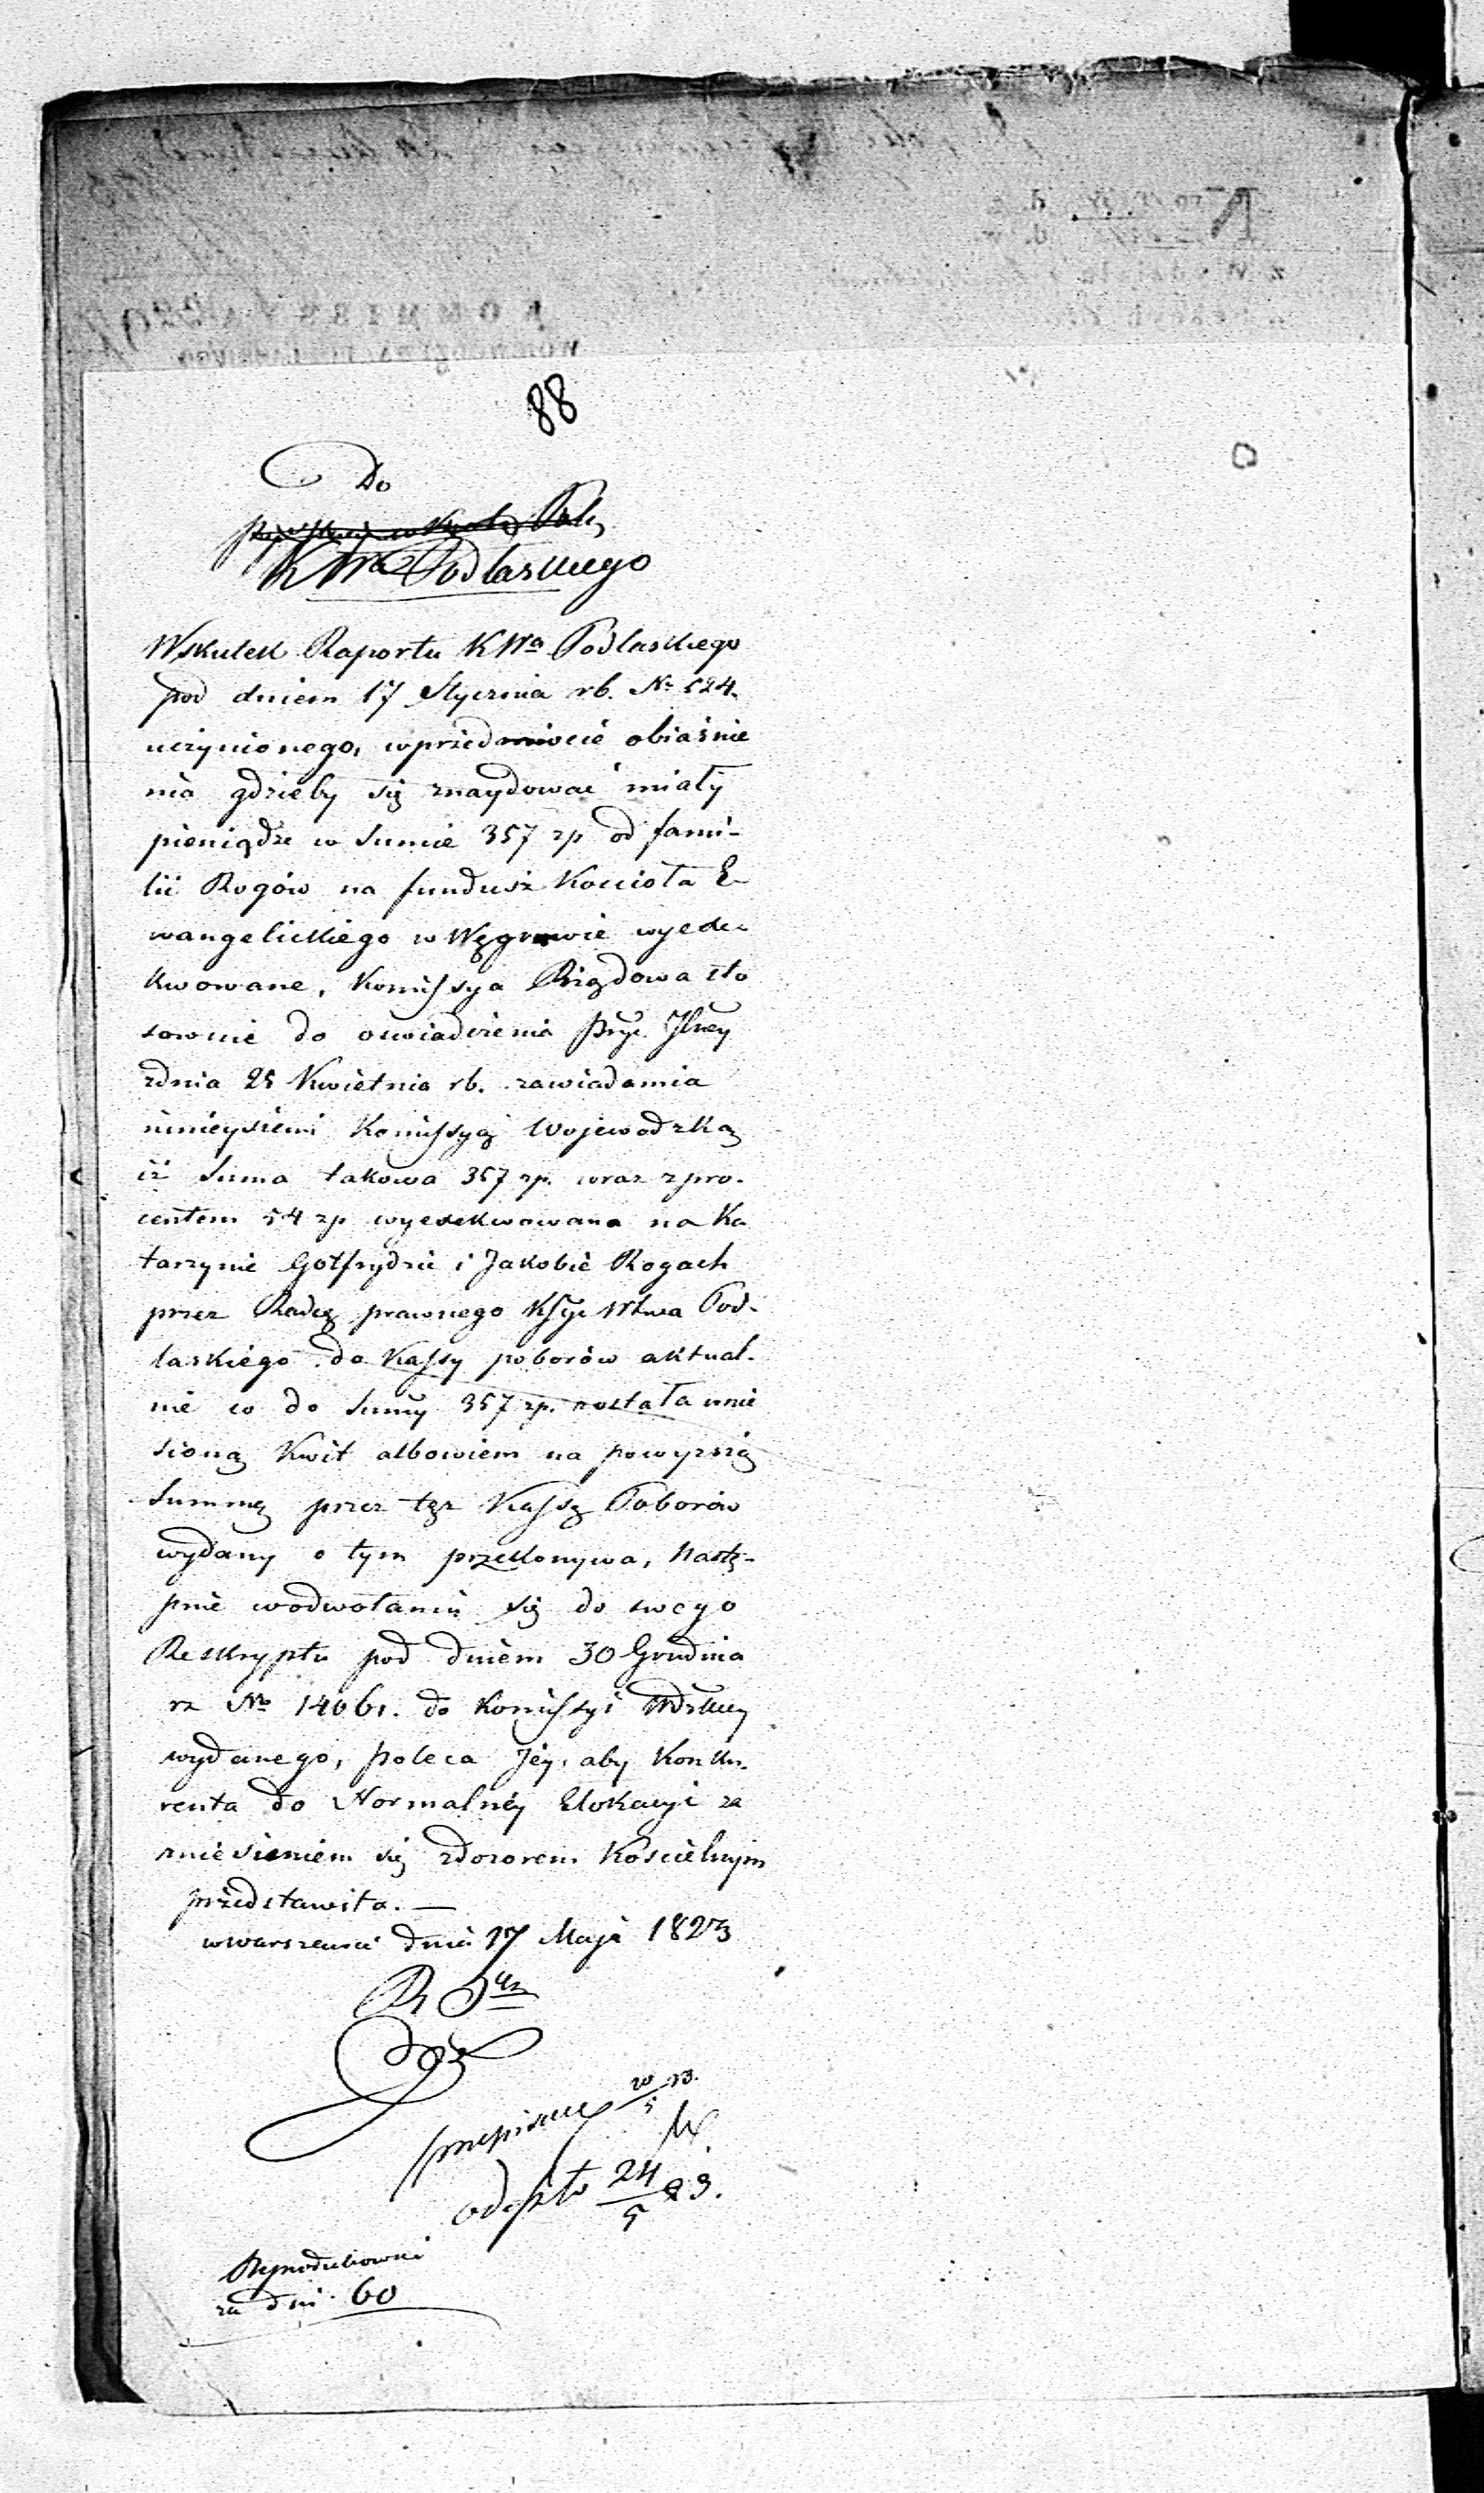 88
Do
K Wa Podlaskiego
Wskutek Raportu K Wa Podlaskiego
pod dniem 17 Stycznia rb. No 524.
uczynionego, wprzedmiocie obiaśnie
nia gdzieby się znaydować miały
pieniądze w Summie 357 zp od fami-
lii Rogów na fundusz Kościoła E-
wangelickiego w Węgrowie wyexe-
kwowane, Komissya Rządowa sto
sownie do oswiadczenia Jlney
zdnia 25 Kwietnia rb. zawiadamia
ninieyszem Komissyą Wojewodzką
iż Suma takowa 357 zp. wraz zpro-
centem 54 zp wyexekwowana na Ka
tarzynie Gotfrydzie i Jakobie Rogach
przez Radcę prawnego Wtwa Pod-
laskiego do Kassy poborów aktual-
nie co do Sumy 357 zp. została wnie
sioną Kwit albowiem na powyższą
Summę przez tęż Kassę Poborów
wydany o tym przekonywa, Nastę-
pnie wodwołaniu się do swego
Reskryptu pod dniem 30 Grudnia
rz No 14061. do Komissyi Wdzkiey
wydanego, poleca Jey, aby Konku-
renta do Normalnéy Elokacyi za
zniesieniem się zdozorem Kościelnym
przedstawiła. —
wWarszawie dnia 17 Maja 1823
przepisany 20/5 23.
odeszło 24/5 23.
Reprodukować
za dni 60